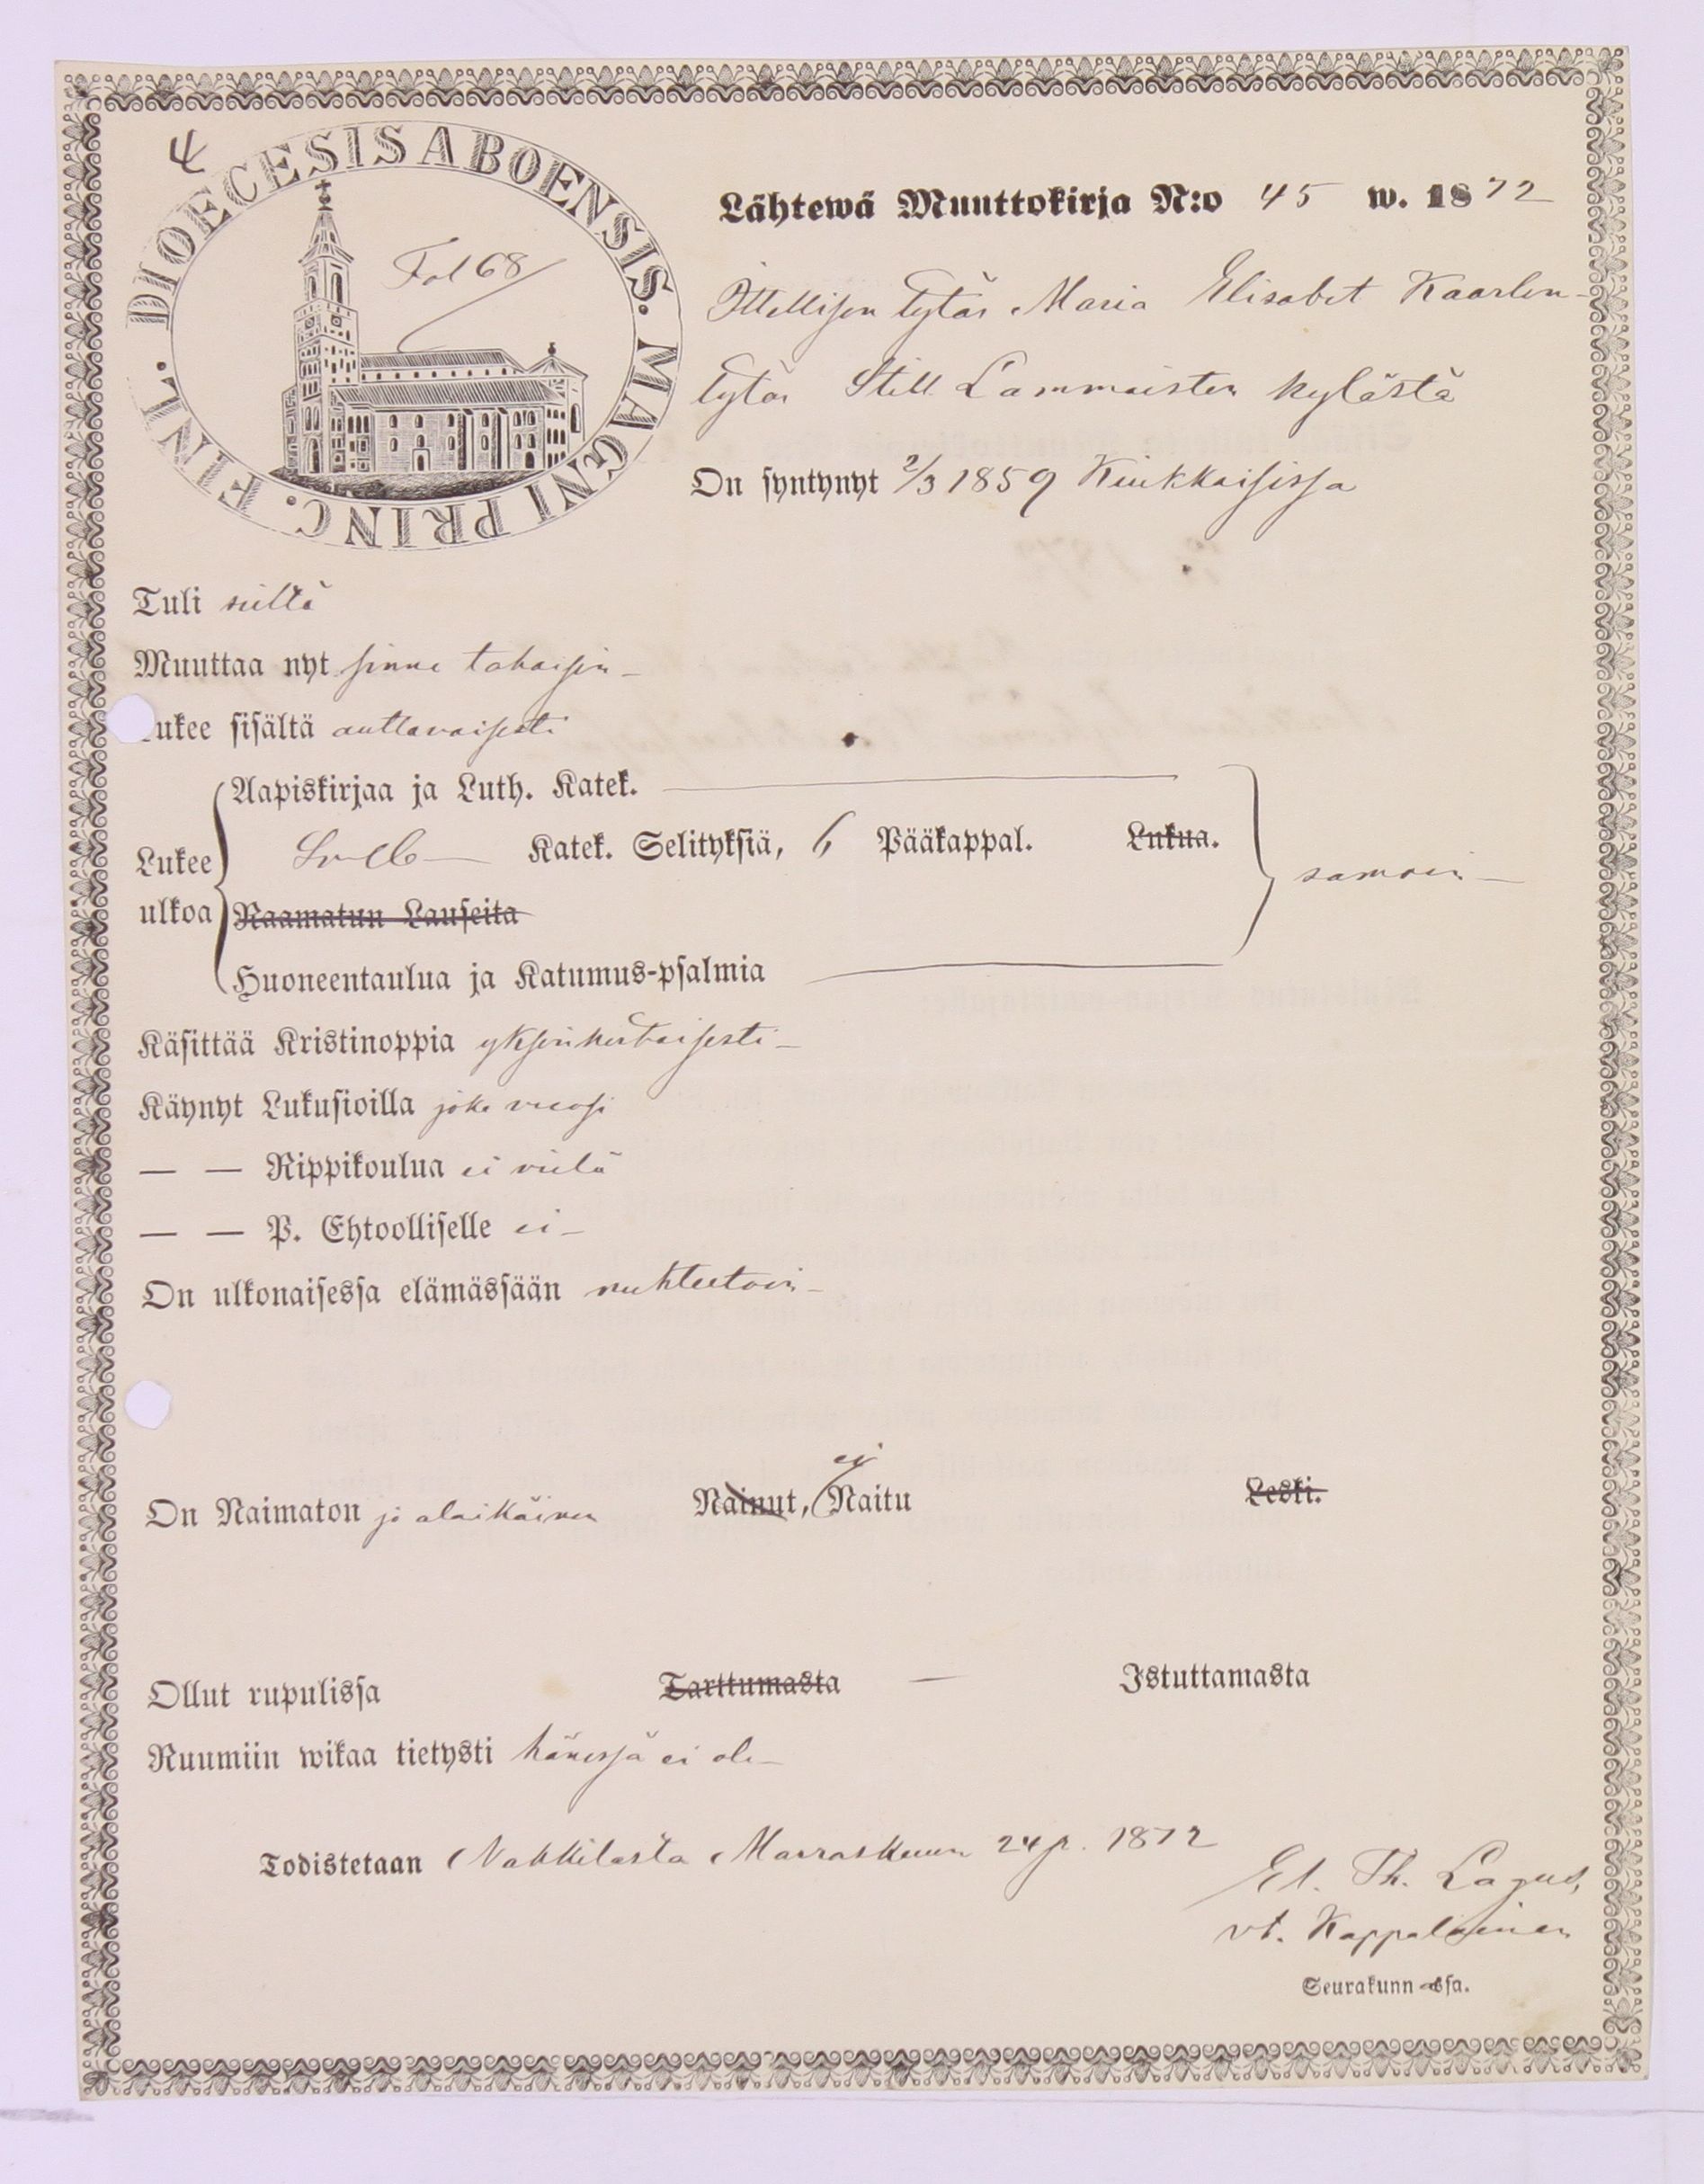 4
DIOECESIS ABOENSIS. MAGNI PRINC. FINL.
Fol 68
Lähtewä Muuttokirja N:o 45 w. 1872
Ittellisen tytär Maria Elisabet Kaarlen-
tytär Still Lammaisten kylästä
On syntynyt 2/3 1859 Kiukkaisissa
Tuli sieltä
Muuttaa nyt sinne takaisin -
Lukee sisältä auttavaisesti
Aapiskirjaa ja Luth. Katek.
Lukee ulkoa
Katek. Selityksiä, 6 Pääkappal. Lukua.
samoin -
Raamatun Lauseita
Huoneentaulua ja Katumus-psalmia
Käsittää Kristinoppia yksinkertaisesti -
Käynyt Lukusioilla joka vuosi
— — Rippikoulua ei vielä
— — P. Ehtoolliselle ei -
On ulkonaisessa elämässään nuhteetoin -
On Naimaton ja alaikäinen Nainut, ei Naitu Leski.
Ollut rupulissa Tarttumasta — Istuttamasta
Ruumiin wikaa tietysti hänessä ei ole -
Todistetaan Nakkilasta Marraskuun 24 p. 1872
Th. Lagus,
vt. Kappalainen
Seurakunnassa.